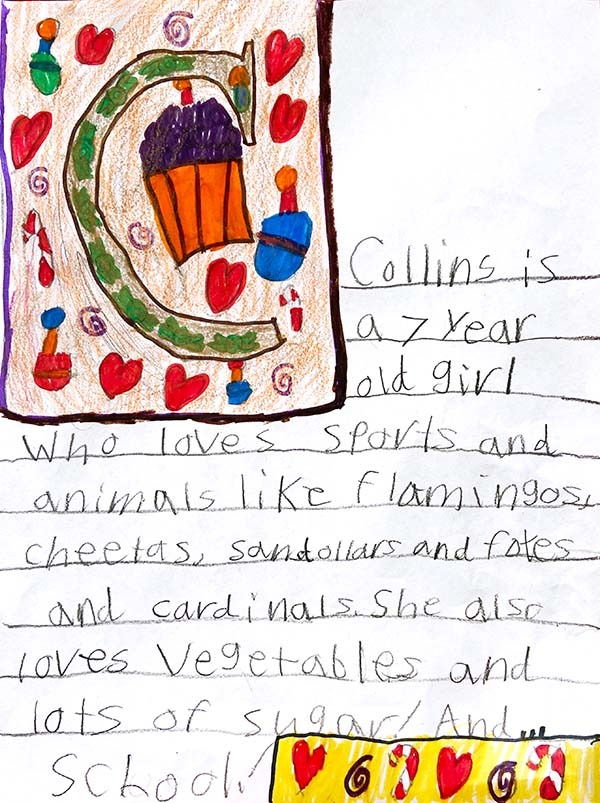 Collins is
a 7 year
old girl
Who loves sports and
animals like flamingos,
cheetas, sandollars and fotes
and cardinals. She also
loves vegetables and
lots of sugar! And...
School!